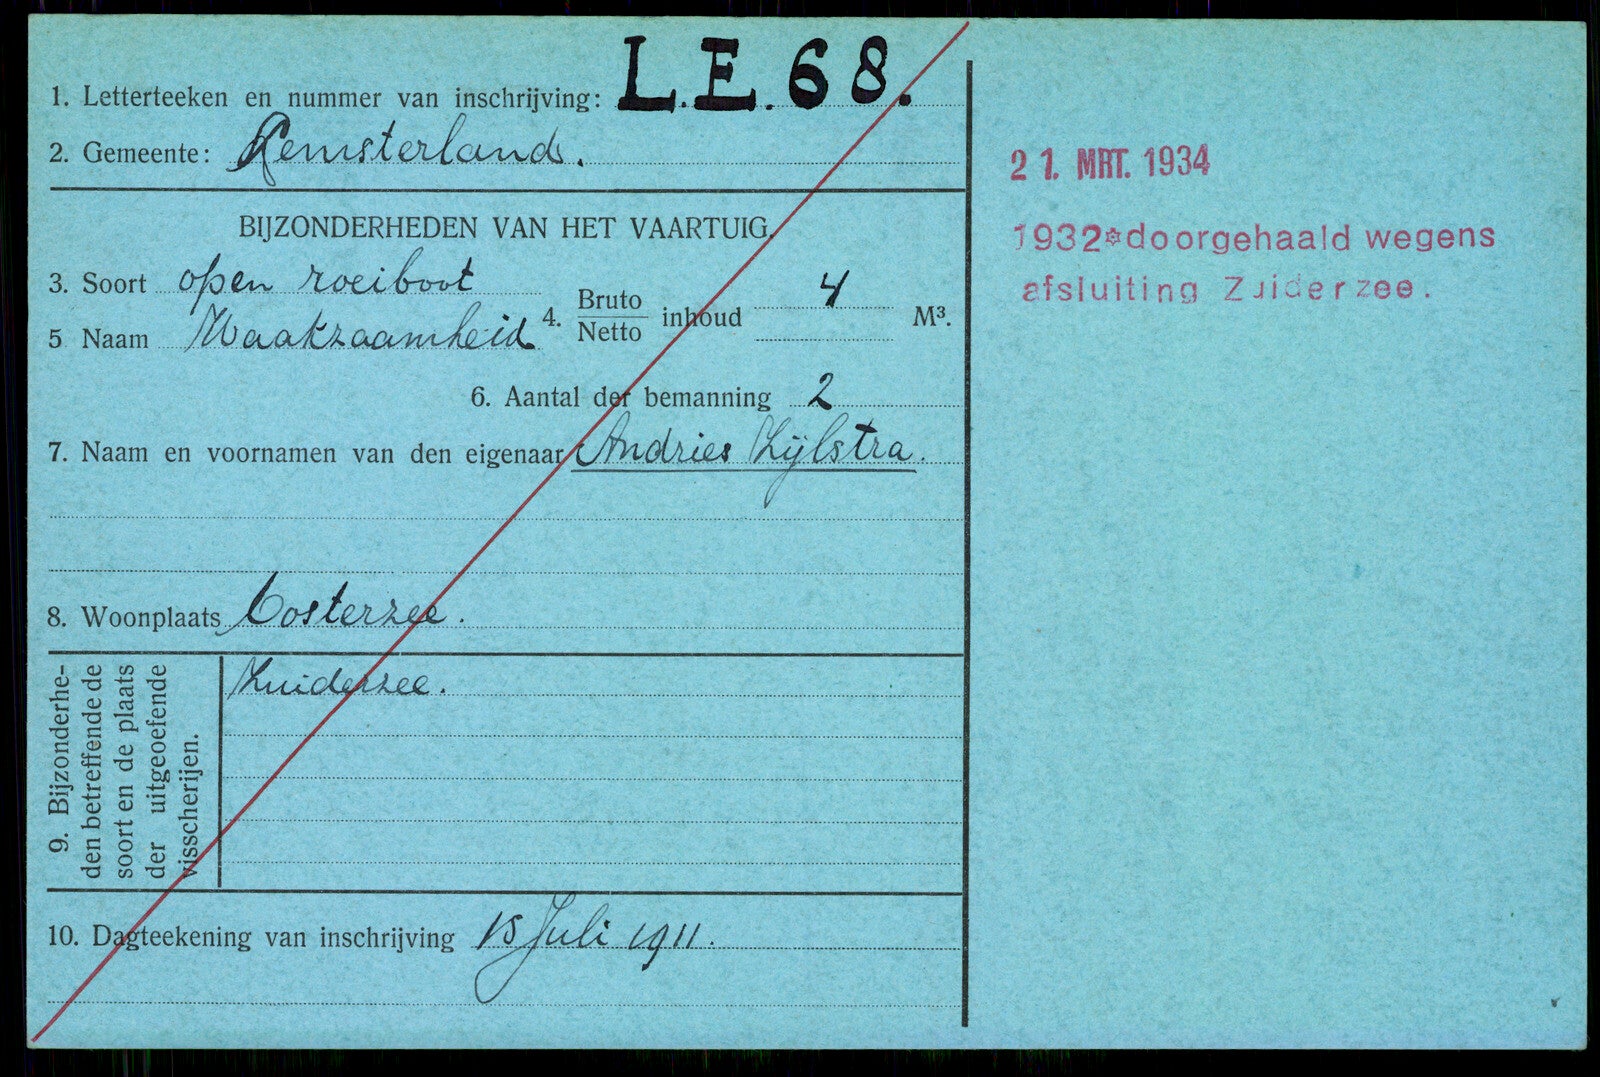 1. Letterteeken en nummer van inschrijving: L.E.68.
2. Gemeente: Lemsterland.
BIJZONDERHEDEN VAN HET VAARTUIG.
3. Soort open roeiboot
4. Bruto Netto inhoud 4 M³.
5 Naam Waakzaamheid
6. Aantal der bemanning 2
7. Naam en voornamen van den eigenaar Andries Zijlstra.
8. Woonplaats Oosterzee.
9. Bijzonderhe-
den betreffende de
soort en de plaats
der uitgeoefende
visscherijen.
Zuiderzee.
10. Dagteekening van inschrijving 15 Juli 1911.
21. MRT. 1934
1932*doorgehaald wegens
afsluiting Zuiderzee.